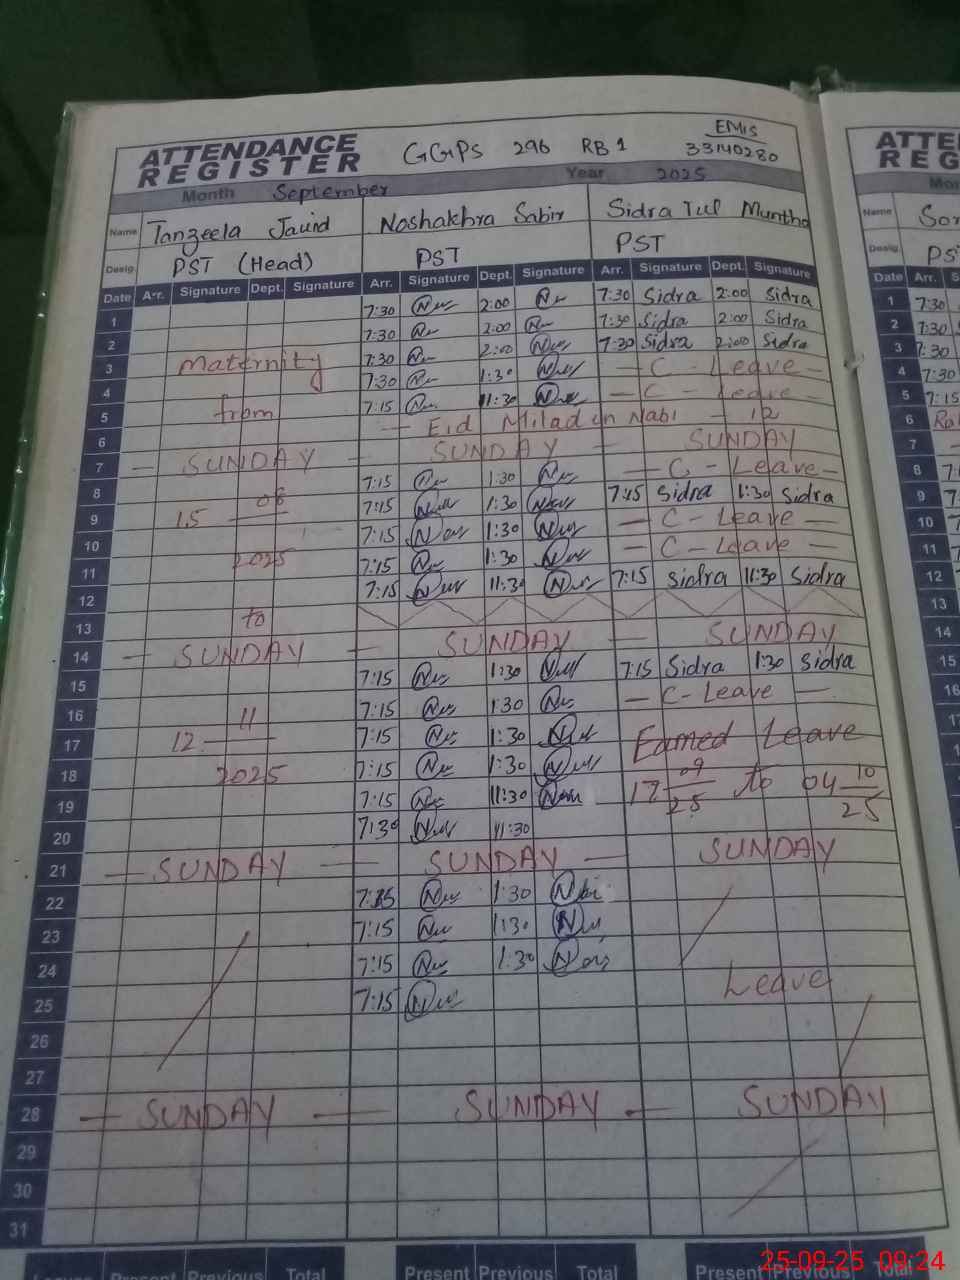 EMIS
ATTENDANCE REGISTER GGPS 296 RB 1 33140280
Month September Year 2025
Name Tanzeela Javid Noshakhra Sabir Sidra Tul Muntha
Desig. PST (Head) PST PST
Date Arr. Signature Dept. Signature Arr. Signature Dept. Signature Arr. Signature Dept. Signature
1 7:30 2:00 7:30 Sidra 2:00 Sidra
2 7:30 2:00 7:30 Sidra 2:00 Sidra
3 Maternity 7:30 2:00 7:30 Sidra 2:00 Sidra
4 7:30 1:30 - C - Leave -
5 from 7:15 11:30 - C - Leave -
6 - Eid Milad un Nabi - 12
7 - SUNDAY - SUNDAY - SUNDAY
8 7:15 1:30 - C - Leave -
9 15 - 08 7:15 1:30 7:15 Sidra 1:30 Sidra
10 7:15 1:30 - C - Leave -
11 2025 7:15 1:30 - C - Leave -
12 7:15 11:30 7:15 Sidra 11:30 Sidra
13 to
14 - SUNDAY - SUNDAY - SUNDAY
15 7:15 1:30 7:15 Sidra 1:30 Sidra
16 11 7:15 1:30 - C - Leave -
17 12 - 7:15 1:30 Earned Leave
18 2025 7:15 1:30 09 10
19 7:15 11:30 17 25 to 04 25
20 7:30 11:30
21 - SUNDAY - SUNDAY - SUNDAY
22 7:15 1:30
23 7:15 1:30
24 7:15 1:30
25 7:15 Leave
26
27
28 - SUNDAY - SUNDAY - SUNDAY
29
30
31
Present Previous Total Present Previous Total Present Previous Total
ATTEN
REG
Mon
Name Sor
Desig. PS
Date Arr. S
1 7:30
2 7:30
3 7:30
4 7:30
5 7:15
6
7
8
9
10
11
12
13
14
15
16
25-09-25 09:24